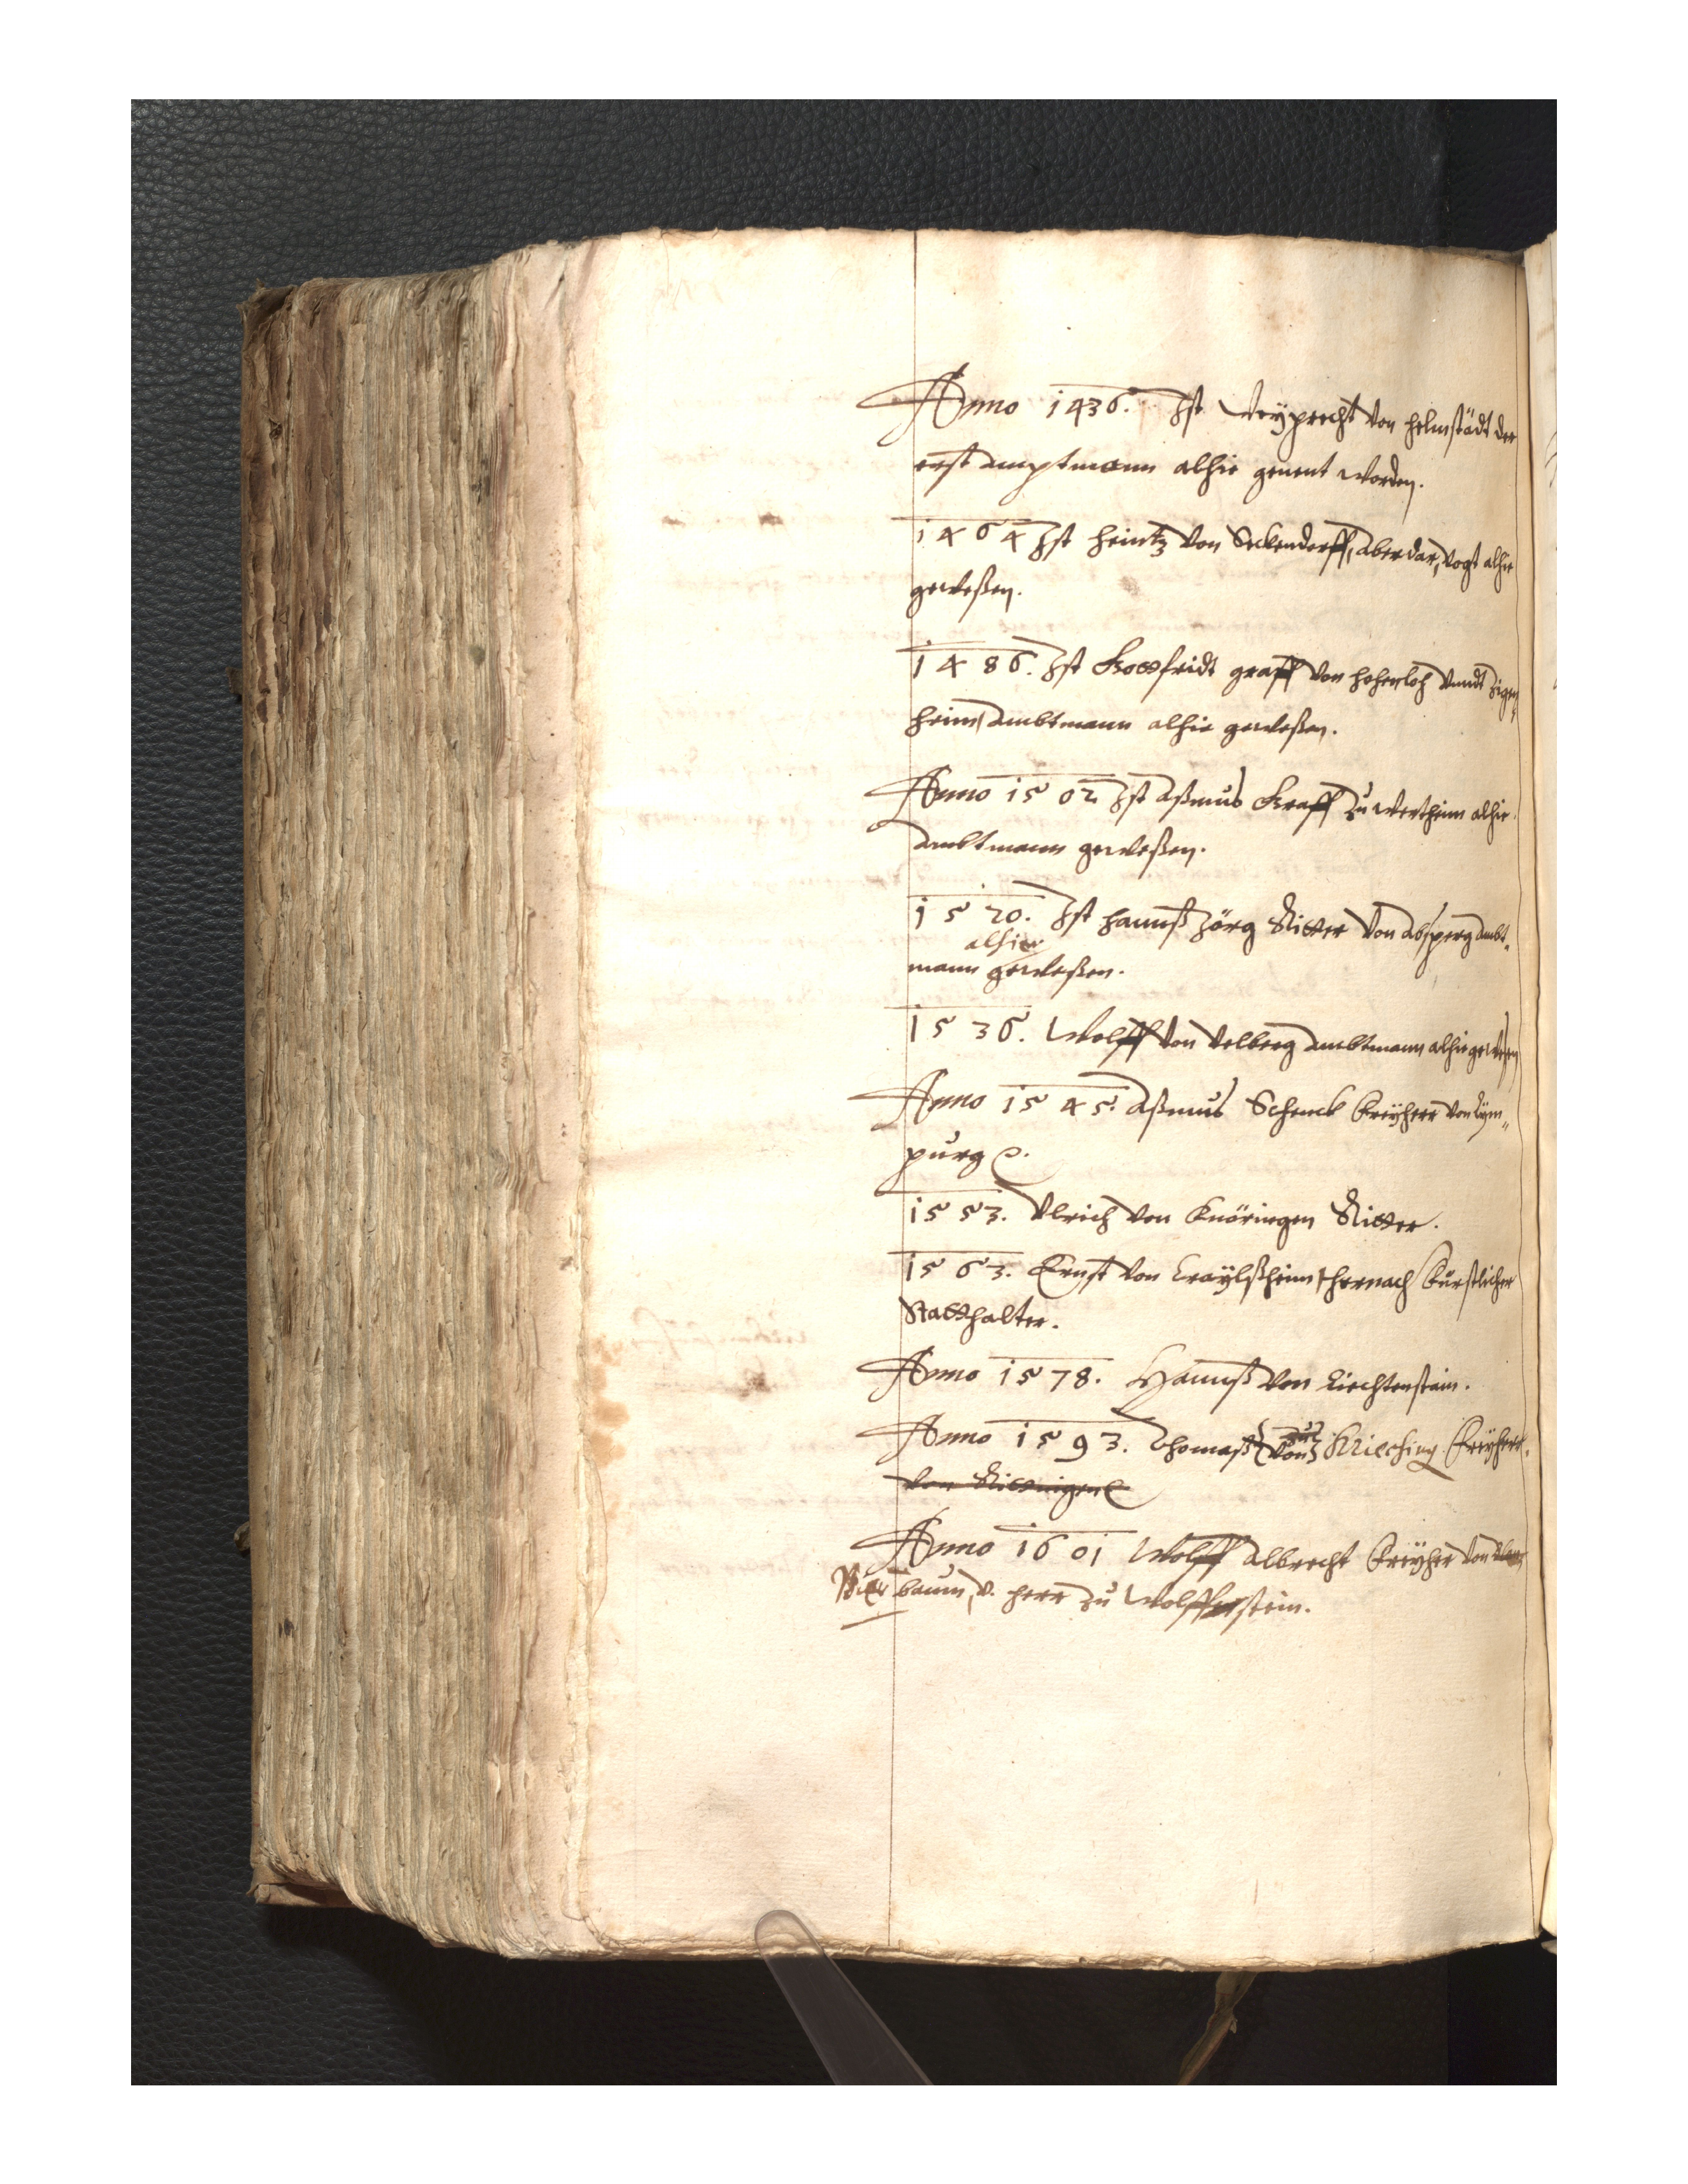 Anno 1436. Ist Weyprecht von helmstädt der
erst amptmann alhie genent worden.
1464 Ist heintz von Seckendorff, aberdar, vogt alhie
geweßen.
1486. Ist Gottfridt graff von hohenloh vnndt Zigen,,
heim, ambtmann alhie geweßen.
Anno 1502 Ist aßmus Graff zu wertheim alhie
ambtmann geweßen.
1520. Ist hannß Jörg Ritter von absperg ambt,,
alhier
mann geweßen.
1536. Wolff von velberg ambtmann alhie geweßen
Anno 1545. aßmus Schenck freyherr von Lÿm,,
purg
1553. Vlrich von Knöringen Ritter.
1563. Ernst von Craylßheim, hernach fürstlicher
Statthalter.
Anno 1578. Hannß von Liechtenstain.
zu
Anno 1593. Thomaß (von) Krieching freyherr.
von
Anno 1601 Wolff albrecht freyherr von
baum, v. herr zu Wolffstein.